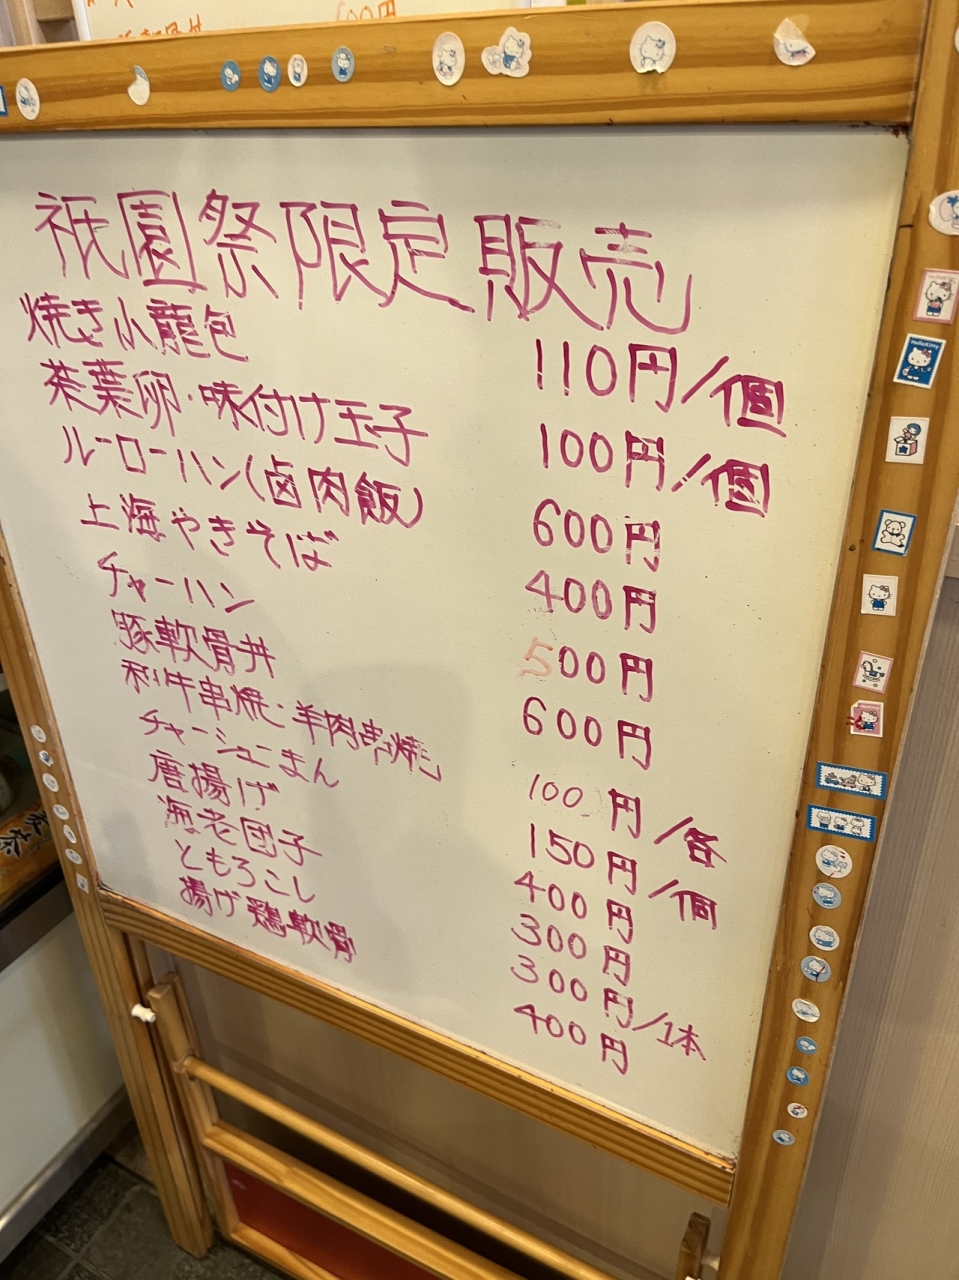 600円
祇園祭限定販売
焼き小龍包 110円/個
茶葉卵・味付け玉子 100円/個
ルーローハン(卤肉飯) 600円
上海やきそば 400円
チャーハン 500円
豚軟骨丼 600円
利牛串焼・羊肉串焼 100円/各
チャーシューまん 150円/個
唐揚げ 400円
海老団子 300円
ともろこし 300円/1本
揚げ鶏軟骨 400円
HelloKitty